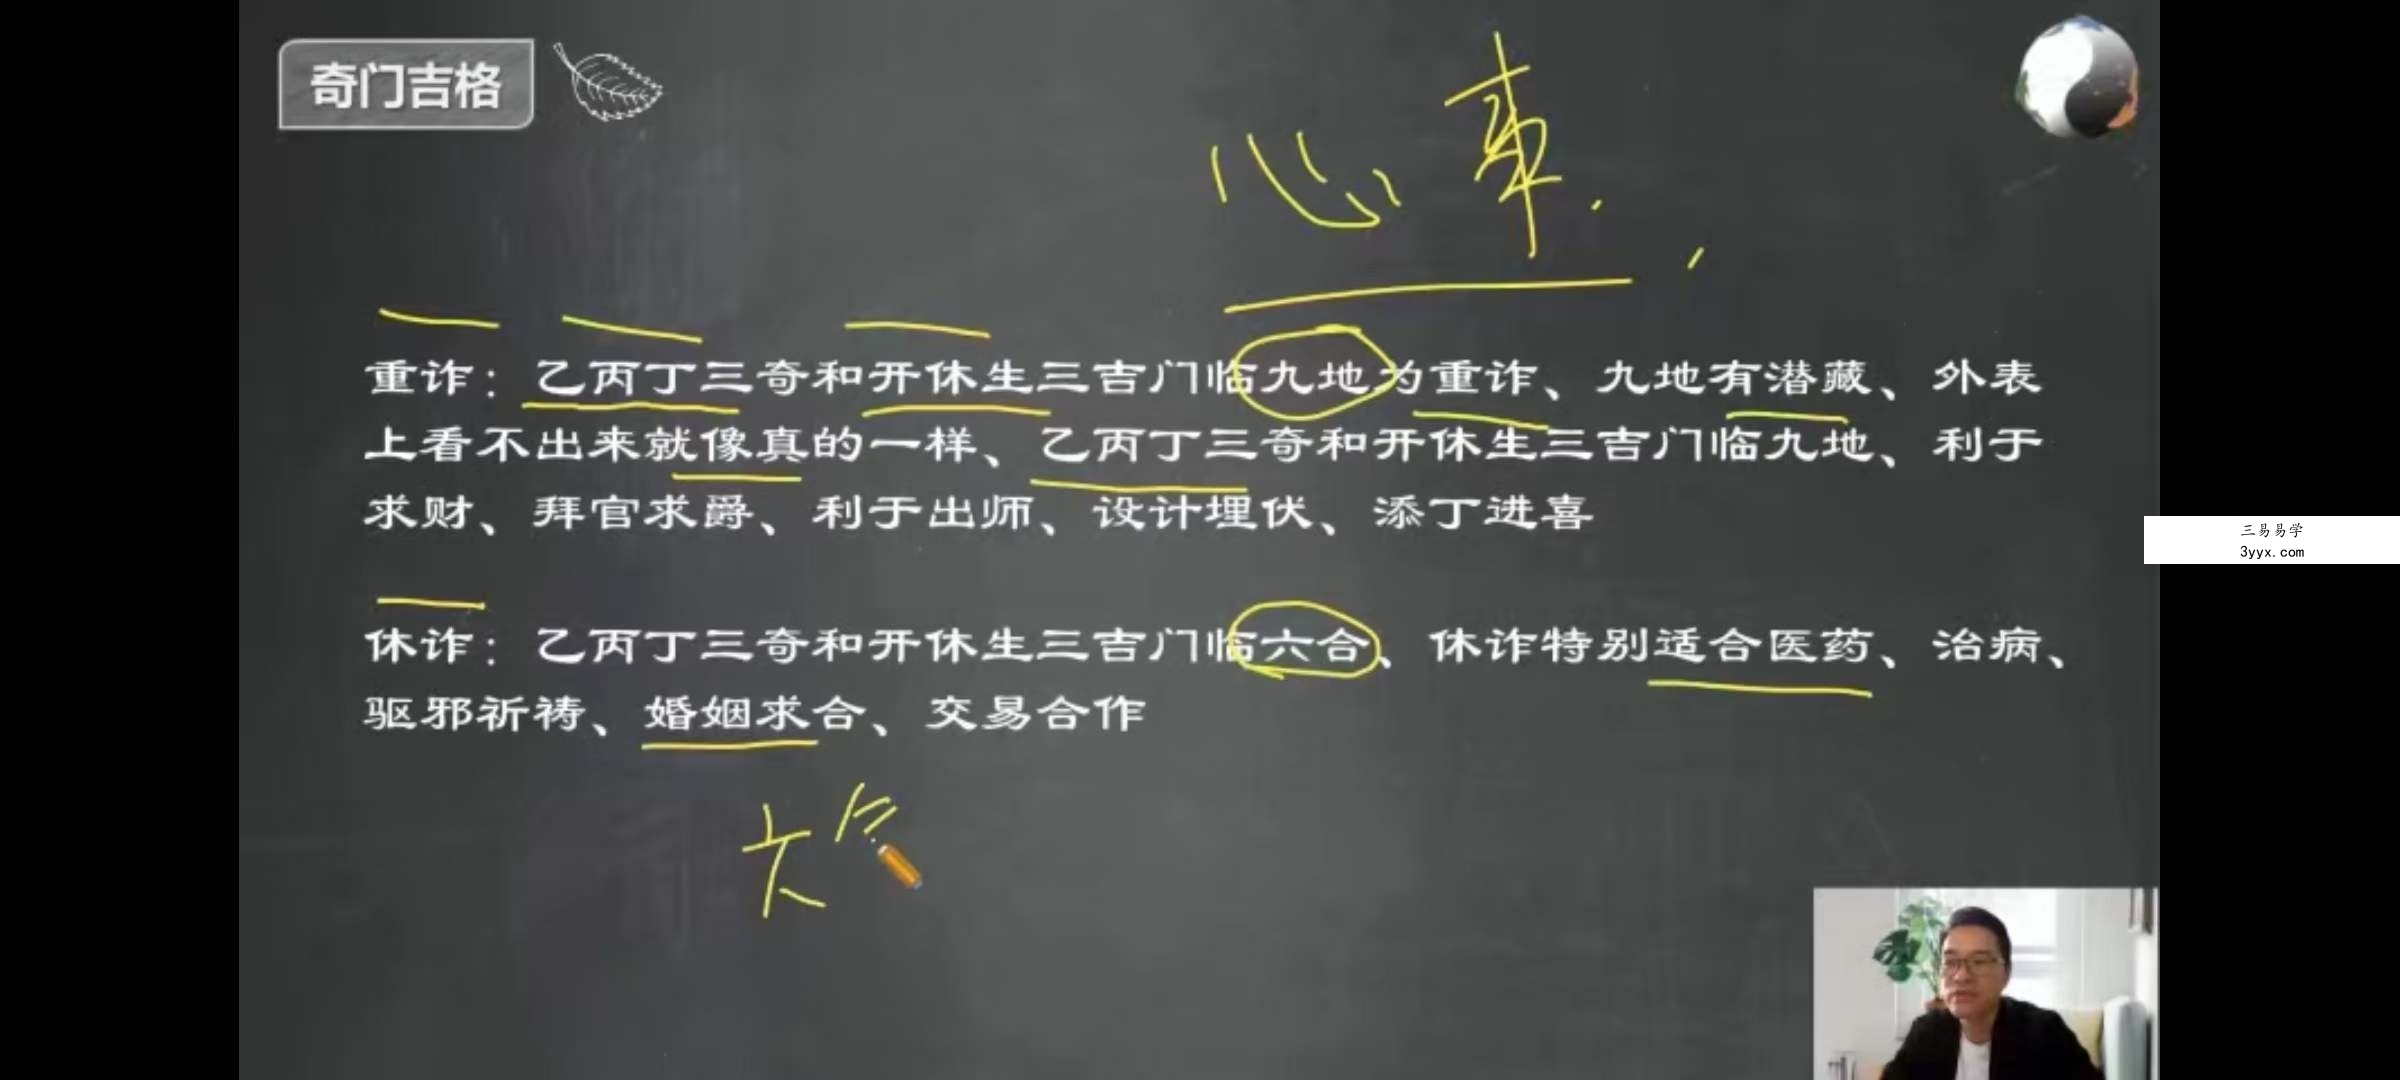 奇门吉格
心事
重诈：乙丙丁三奇和开休生三吉门临九地为重诈、九地有潜藏、外表
上看不出来就像真的一样、乙丙丁三奇和开休生三吉门临九地、利于
求财、拜官求爵、利于出师、设计埋伏、添丁进喜
三易易学
3yyx.com
休诈：乙丙丁三奇和开休生三吉门临六合、休诈特别适合医药、治病、
驱邪祈祷、婚姻求合、交易合作
六